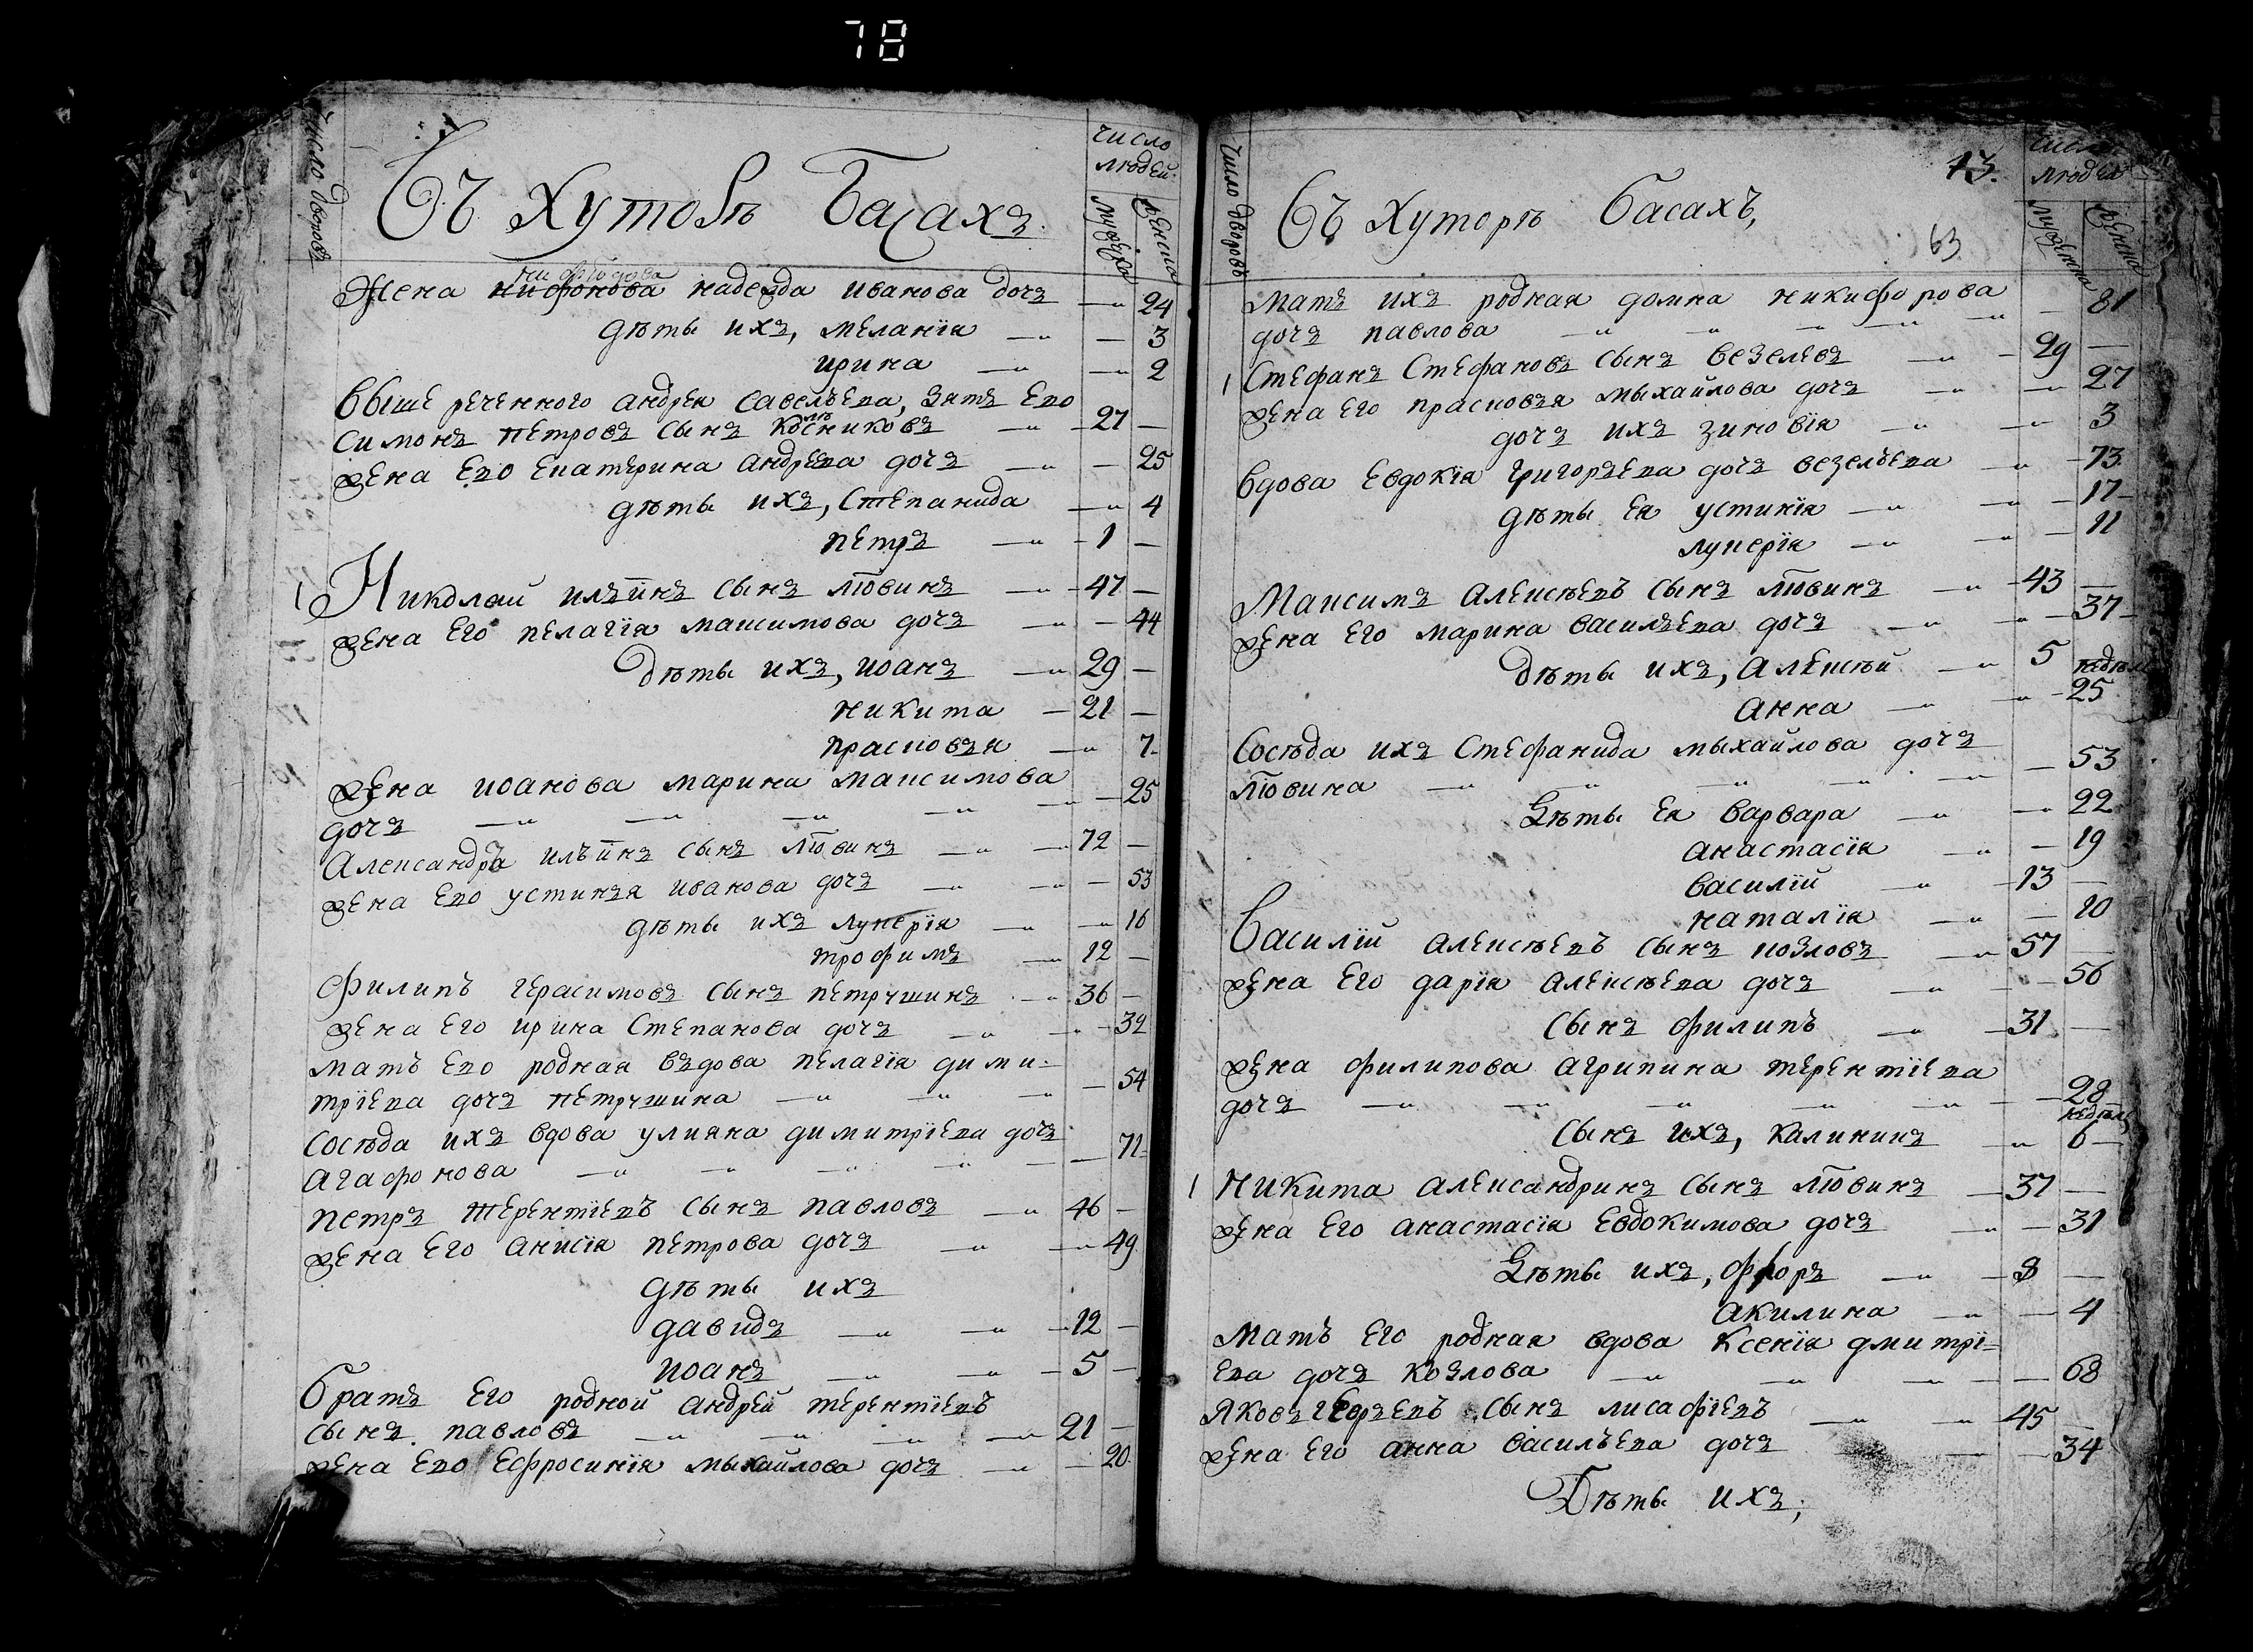 78
Число дворовъ
Въ Хуторѣ Басахъ
число людей
мужеска
женска
Жена никифорова надежда иванова дочь 24
дѣты ихъ, меланїя 3
ирина 2
Выше реченного андрея савельева, зять его
симонъ петровъ сынъ 27
жена его екатерина андреева дочь 25
дѣты ихъ, степанида 4
петръ 1
1 Николай ильинъ сынъ літвинъ 47
жена его пелагїя максимова дочь 44
Дѣты ихъ, иоанъ 29
никита 21
прасковья 7
жена иоанова марина максимова 25
дочь
Александръ ильинъ сынъ літвинъ 72
жена его устинья иванова дочь 53
дѣты ихъ лукерїя 16
трофимъ 12
филипъ герасимовъ сынъ петрушинъ 36
жена его ирина степанова дочь 32
мать его родная вдова пелагїя дими-
трїева дочь петрушина 54
сосѣда ихъ вдова улияна димитрїева дочь
агафонова 71
петръ терентїевъ сынъ павловъ 46
жена его анисїя петрова дочь 49
дѣты ихъ
давидъ 12
иоанъ 5
братъ его родной андрей терентїевъ
сынъ павловъ 21
жена его Ефросинїя мыхайлова дочь 20
Число дворовъ
Въ Хуторѣ Басахъ,
73.
63
число людей
мужеска
женска
мать ихъ родная домна никифорова
дочь павлова 81
1 Стефанъ Стефановъ сынъ везелевъ 29
жена его прасковья мыхайлова дочь 27
дочь ихъ зиновїя 3
Вдова Евдокїя григорьева дочь везельева 73
дѣты ея устинїя 17
лукерїя 11
Максимъ алексѣевъ сынъ літвинъ 43
жена его марина васильева дочь 37
Дѣты ихъ, алексѣй 5 недѣль
анна 25
Сосѣда ихъ Стефанида мыхайлова дочь
літвина 53
Дѣты ея варвара 22
анастасїя 19
василїй 13
наталїя 10
Василїй алексѣевъ сынъ козловъ 57
жена его дарїя алексѣева дочь 56
сынъ филипъ 31
жена филипова агрипина терентїева
дочь 28
сынъ ихъ, калиникъ недѣль 6
1 Никита александринъ сынъ літвинъ 37
жена его анастасїя Евдокимова дочь 31
Дѣты ихъ, флоръ 8
акилина 4
мать его родная вдова ксенїя дмитрї-
ева дочь козлова 68
яковъ сынъ лисафїевъ 45
жена его анна васильева дочь 34
Дѣты ихъ;